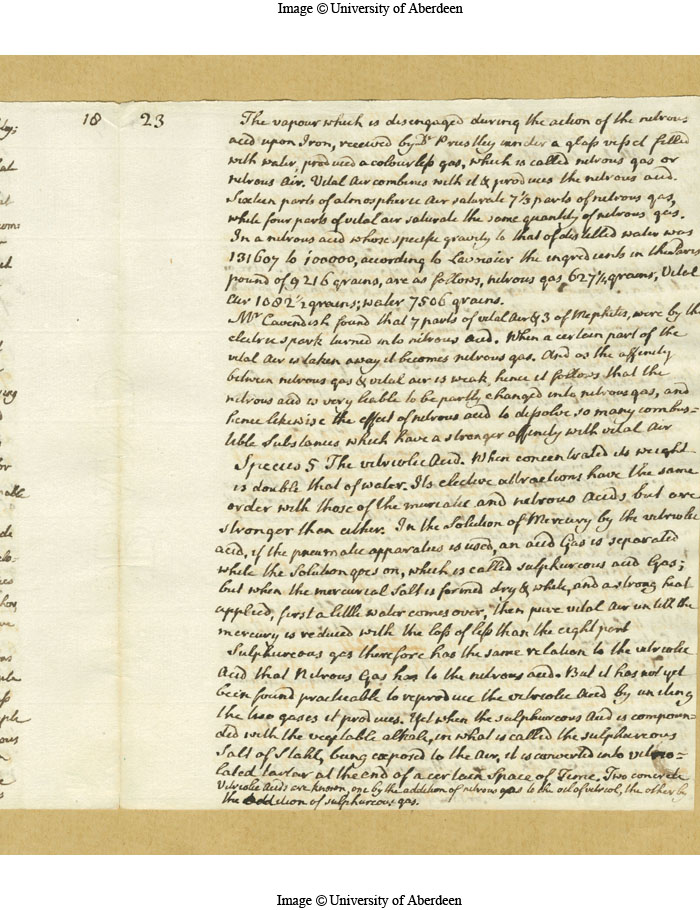 Image © University of Aberdeen
18 23
The vapour which is disengaged during the action of the nitrous
acid upon Iron, received by Dr Priestley under a glass vessel filled
with water, produced a colourless gas, which is called nitrous gas or
nitrous Air. Vital Air combines with it & produces the nitrous acid.
Sixteen parts of atmospheric Air saturate 7⅓ parts of nitrous gas,
while four parts of vital air saturate the same quantity of nitrous gas.
In a nitrous acid whose specific gravity to that of distilled water was
131607 to 100000, according to Lavoisier the ingredients in the Paris
pound of 9216 grains, are as follows, nitrous gas 627¼ grains, Vital
Air 1082½ grains; water 7506 grains.
Mr Cavendish found that 7 parts of vital Air & 3 of Mephitis, were by the
electric spark turned into nitrous acid. When a certain part of the
vital Air is taken away it becomes nitrous gas. And as the affinity
betwixt nitrous gas & vital air is weak, hence it follows that the
nitrous acid is very liable to be partly changed into nitrous gas, and
hence likewise the effect of nitrous acid to dissolve so many combus=
tible Substances which have a stronger affinity with vital Air
Species 5 The vitriolic Acid. When concentrated its weight
is double that of water. Its elective attractions have the same
order with those of the muriatic and nitrous Acids but are
stronger than either. In the Solution of Mercury by the vitriolic
acid, if the pneumatic apparatus is used, an acid Gas is separated
while the Solution goes on, which is called sulphureous acid Gas;
but when the mercurial Salt is formed dry & white, and a strong heat
applied, first a little water comes over, then pure vital Air untill the
mercury is reduced with the loss of less than the eight part
Sulphureous gas therefore has the same relation to the vitriolic
Acid that Nitrous Gas has to the nitrous acid. But it has not yet
been found practicable to reproduce the vitriolic Acid by uniting
the two gases it produces. Yet when the sulphureous Acid is compoun=
ded with the vegetable alkali, in what is called the sulphureous
Salt of Stahl, being exposed to the Air, it is converted into vitrio=
lated tartar at the end of a certain Space of Time. Two concrete
Vitriolic Acids are known, one by the addition of nitrous gas to the oil of vitriol, the other by
the addition of sulphureous gas.
Image © University of Aberdeen